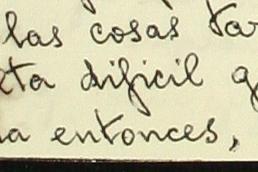 las cosas tar
ta dificil q
a entonces,